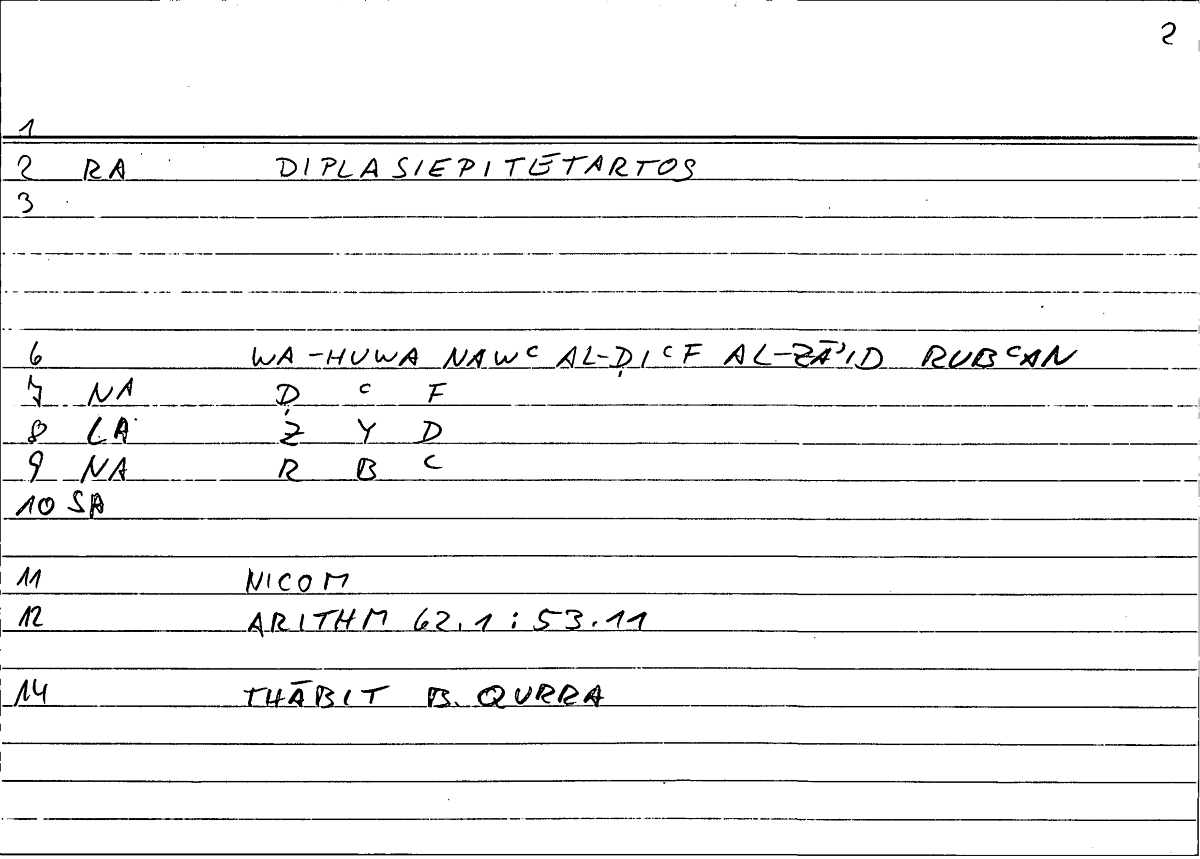 2
1
2 RA DIPLASIEPITĒTARTOS
3
6 WA-HUWA NAWC AL-ḌICF AL-ZĀ'ID RUBCAN
7 NA Ḍ C F
8 LA Z Y D
9 NA R B C
10 SA
11 NICOM
12 ARITHM 62.1 : 53.11
14 THĀBIT B. QURRA